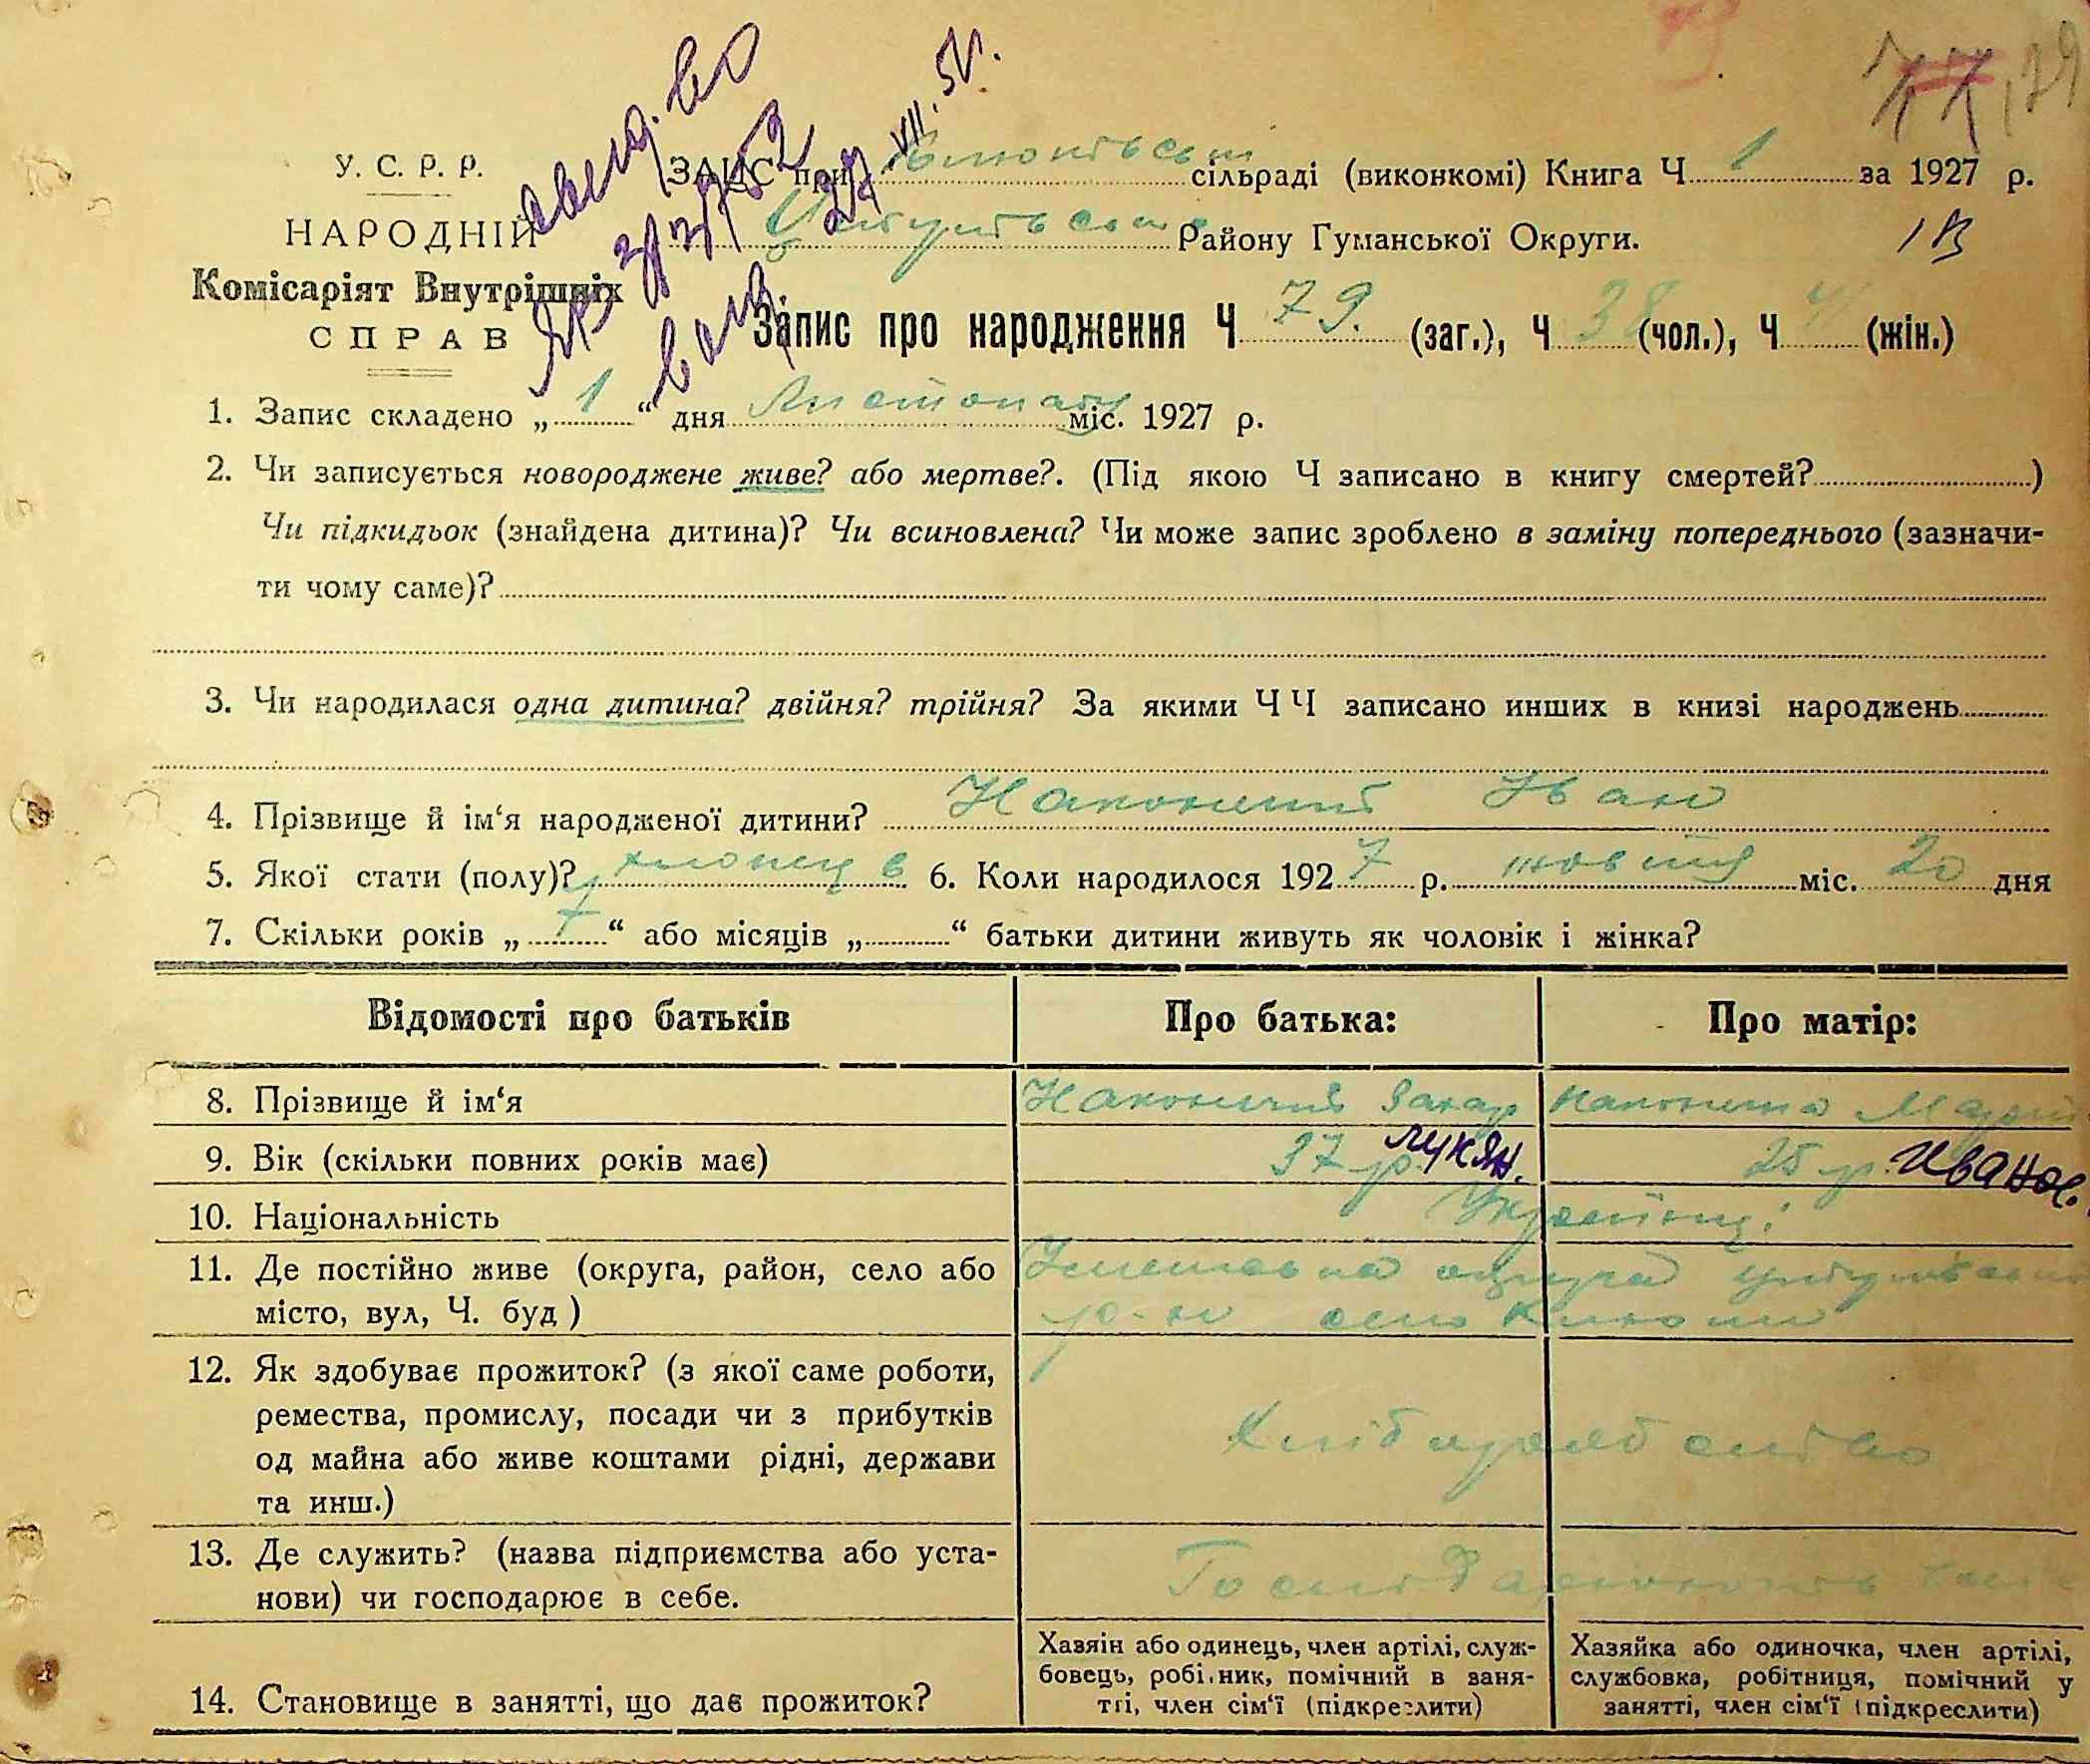 У. С. Р. Р.
ЗАГС при сільраді (виконкомі) Книга Ч. 1 за 1927 р.
НАРОДНІЙ
Району Гуманської Округи.
Комісаріят Внутрішніх
СПРАВ
Запис про народження Ч 79. (заг.), Ч 38 (чол.), Ч 41 (жін.)
1. Запис складено „ 1 “ дня Листопаду міс. 1927 р.
2. Чи записується новороджене живе? або мертве?. (Під якою Ч записано в книгу смертей? )
Чи підкидьок (знайдена дитина)? Чи всиновлена? Чи може запис зроблено в заміну попереднього (зазначи-
ти чому саме)?
3. Чи народилася одна дитина? двійня? трійня? За якими Ч Ч записано инших в книзі народжень
4. Прізвище й ім‘я народженої дитини? Наконечний Іван
5. Якої стати (полу)? хлопець 6. Коли народилося 1927 р. жовтня міс. 20 дня
7. Скільки років „ 7 “ або місяців „ “ батьки дитини живуть як чоловік і жінка?
Відомості про батьків Про батька: Про матір:
8. Прізвище й ім‘я Наконечний Захар Наконечна Марія
9. Вік (скільки повних років має) 37 р. Лукян. 25 р. Иванов.
10. Національність Українці
11. Де постійно живе (округа, район, село або
місто, вул, Ч. буд ) Уманська округа
р-н село
12. Як здобуває прожиток? (з якої саме роботи,
ремества, промислу, посади чи з прибутків
од майна або живе коштами рідні, держави
та инш.)
Хліборобство
13. Де служить? (назва підприємства або уста-
нови) чи господарює в себе.
14. Становище в занятті, що дає прожиток?
Хазяін або одинець, член артілі, служ-
бовець, робітник, помічний в заня-
тті, член сім‘ї (підкреслити)
Хазяйка або одиночка, член артілі,
службовка, робітниця, помічний у
занятті, член сім‘ї (підкреслити)